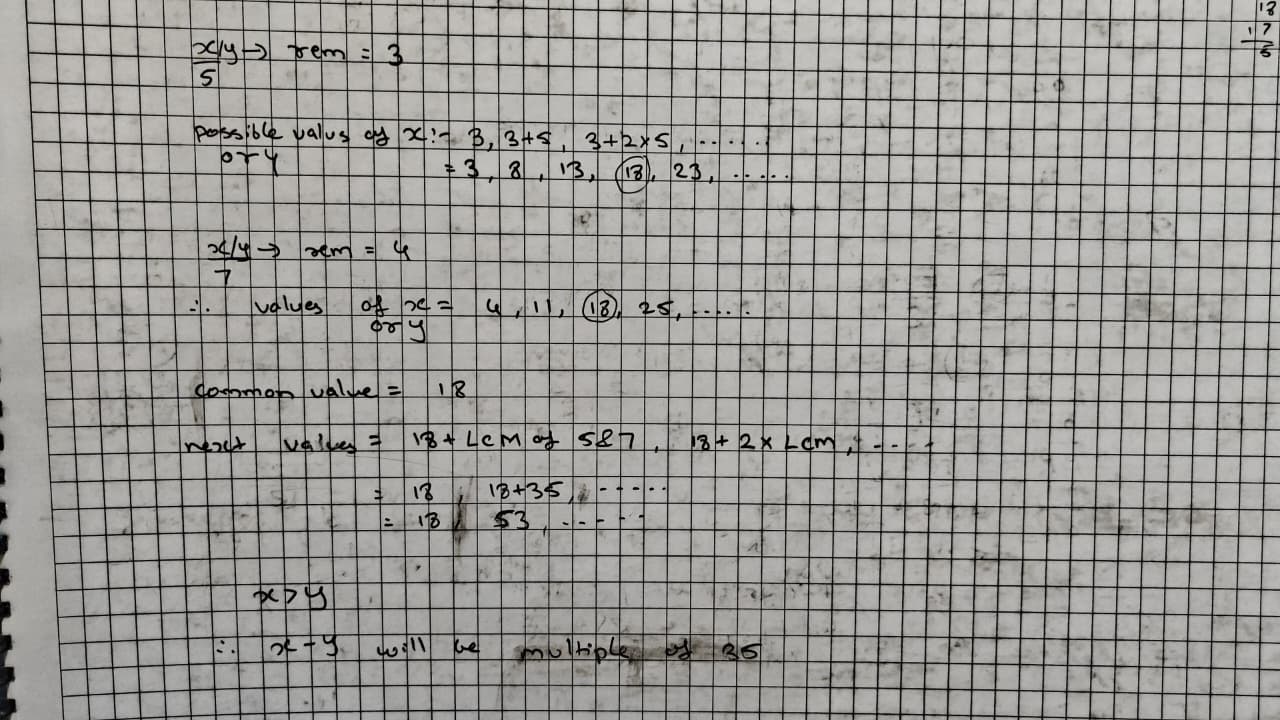 18
17
5
x/y → rem = 3
5
possible valus of x:- 3, 3+5, 3+2×5, ......
or y
= 3, 8, 13, 18, 23, .....
x/y → rem = 4
7
∴ values of x = 4, 11, 18, 25, .....
or y
common value = 18
next values = 18 + LCM of 5&7, 18 + 2 × LCM, ----
= 18, 18+35, -----
= 18, 53, -----
x>y
∴ x-y will be multiple of 35